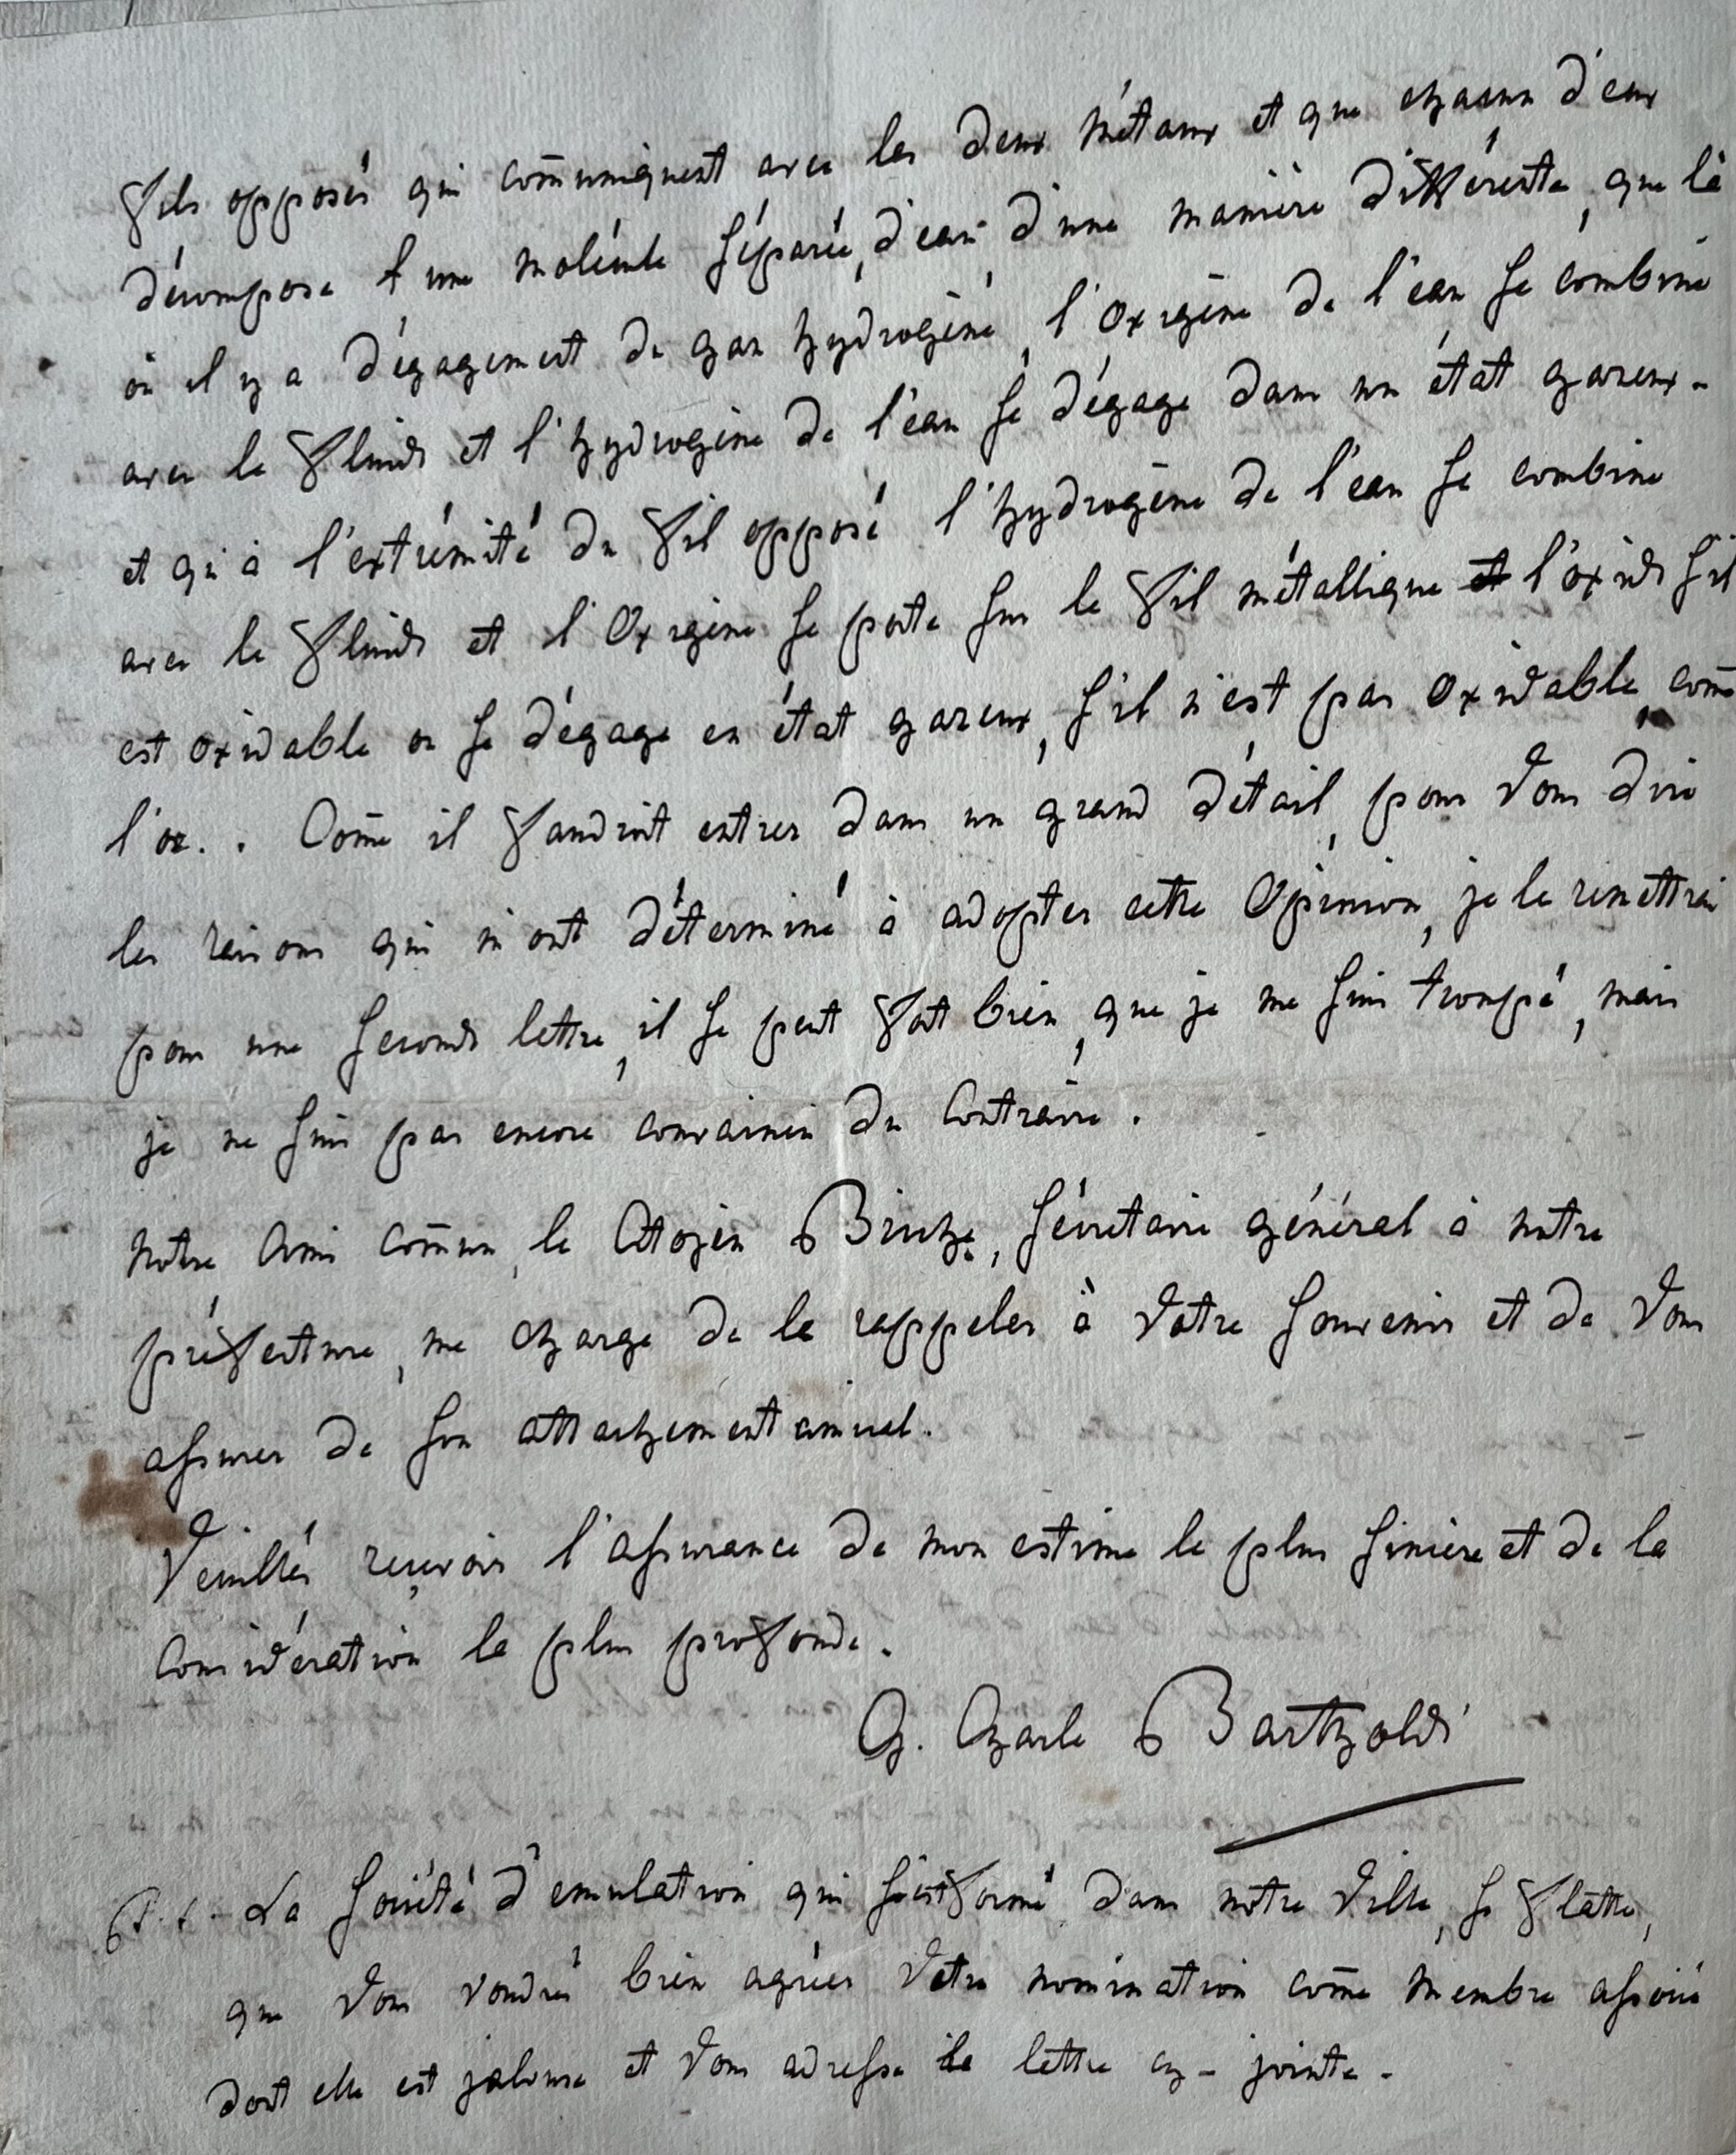 fils opposés qui com̄uniquent avec les deux métaux et que chacun d'eux
décompose une molécule séparée, d'eau d'une manière différente, que là
où il y a dégagement de gaz hydrogène, l'oxigène de l'eau se combine
avec le fluide et l'hydrogène de l'eau se dégage dans un état gazeux -
et qu'à l'extrémité du fil opposé l'hydrogène de l'eau se combine
avec le fluide et l'Oxigène se porte sur le fil métallique et l'oxide s'il
est oxidable ou se dégage en état gazeux, s'il n'est pas oxidable, com̄e
l'or.. Com̄e il faudroit entrer dans un grand détail, pour vous dire
les raisons qui m'ont déterminé à adopter cette Opinion, je le remettrai
pour une seconde lettre, il se peut fort bien, que je me suis trompé, mais
je ne suis pas encore convaincu du Contraire.
Notre Ami com̄un, le Citoyen Briche, sécretaire général à notre
préfecture, me charge de le rappeler à votre souvenir et de vous
assurer de son attachement amical.
Veuillés reçevoir l'assurance de mon estime le plus sincère et de la
Considération la plus profonde.
G. Charle Bartholdi
P.S. - La société d'emulation qui s'est formé dans nôtre ville, se flatte,
que vous voudrés bien agréer votre nomination com̄e membre associé
dont elle est jalouse et vous adresse la lettre cy-jointe.